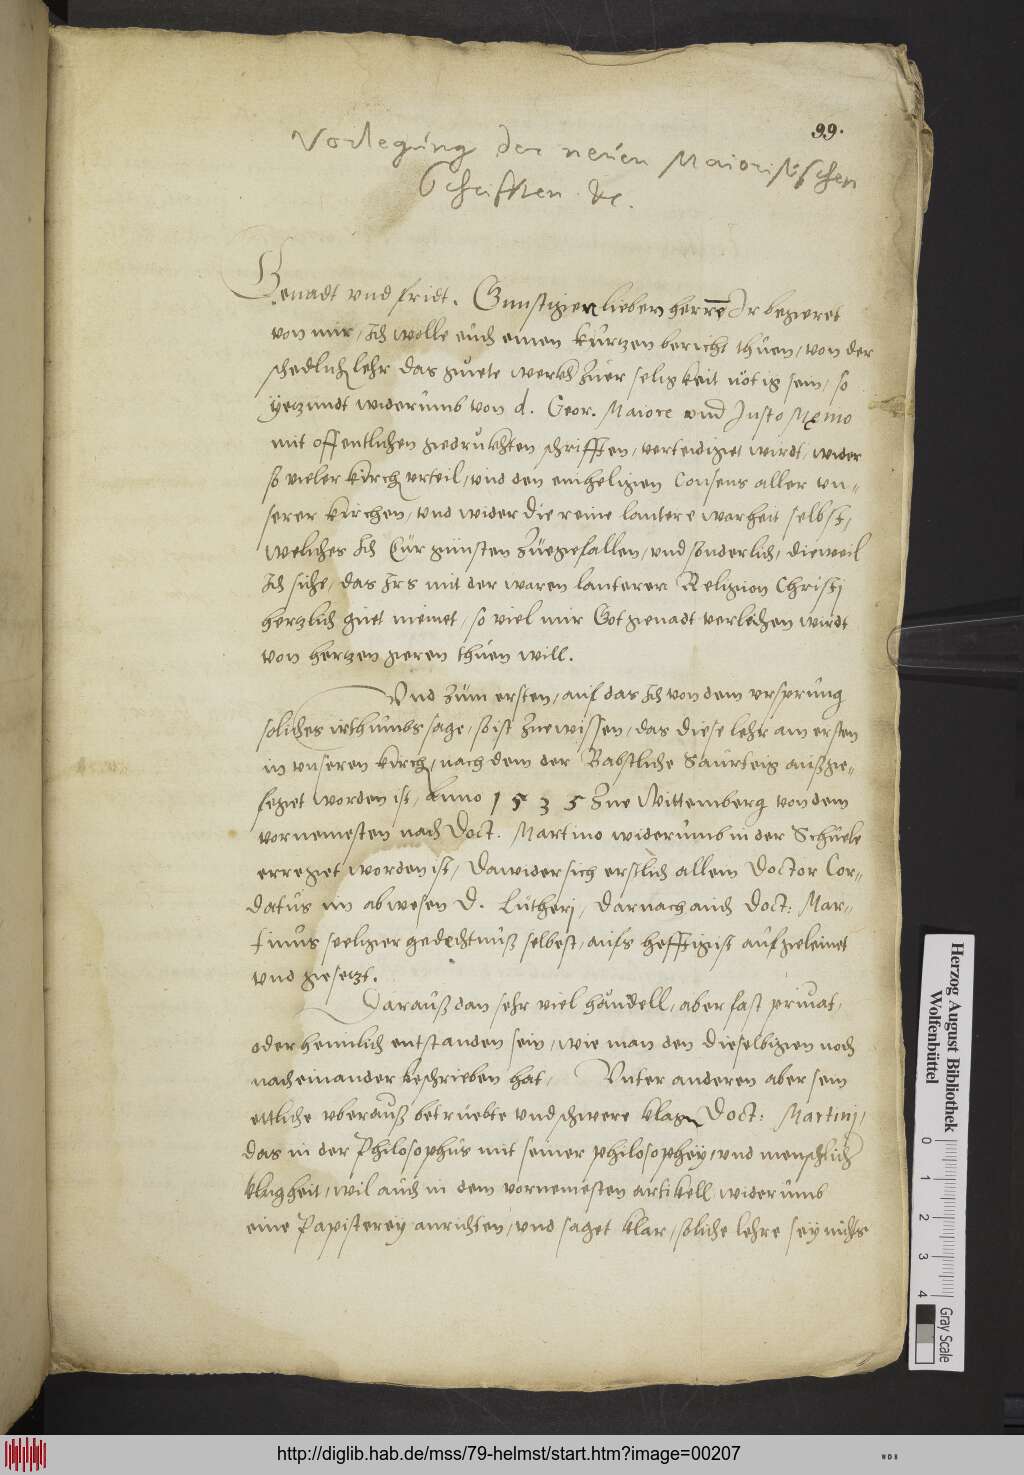 99.
Vorlegung der neuen Maioristischen
Schrifften. &c.
Genadt vnd fridt. Gunstigen lieben herrē Ir begeret
von mir, Ich wolle euch einen kurtzen bericht thuen, von der
schedlichen lehr das guete werkh zuer seligkeit nötig sein, so
yetzundt widerumb von d. Geor. Maiore vnd Justo Menio
mit offentlichen gedrukhten schrifften, verteidiget wirdt, wider
so vieler kirchen vrteil, vnd den einheligen Consens aller vn-
serer kirchen, vnd wider die reine lautere warheit selbst,
weliches Ich Eür günsten zuegefallen, vnd sonderlich, dieweil
Ich sihe, das Irs mit der waren lauteren Religion Christj
hertzlich guet meinet, so viel mir Got genadt verleihen wirdt
von hertzen geren thuen will.
Vnd zum ersten, auf das Ich von dem vrsprung
soliches irthumbs sage, so ist zuewissen, das diese lehr am ersten
in vnseren kirchen, nach dem der Babstliche Saurteig außge-
feget worden ist, Anno 1535 Zue Wittemberg von dem
vornemesten nach Doct. Martino widerumb in der Schuele
erreget worden ist, Dawider sich erstlich allein Doctor Cor-
datus im abwesen D. Lutherj, Darnach auch Doct: Mar-
tinus seeliger gedechtnuß selbest, aufs hefftigist aufgeleinet
vnd gesetzt.
Darauß dan sehr viel händell, aber fast priuat,
oder heimlich entstanden sein, wie man den dieselbigen noch
nacheinander beschrieben hat, Vnter anderen aber sein
ettliche vberauß betruebte vnd schwere klagen Doct: Martinj,
das in der Philosophus mit seiner philosophey, vnd menschlichē
klugheit, wil auch in dem vornemesten artikell widerumb
eine Papisterey anrichten, vnd saget klar, soliche lehre sey nichts
Herzog August Bibliothek
Wolfenbüttel
0 1 2 3 4
Gray Scale
http://diglib.hab.de/mss/79-helmst/start.htm?image=00207